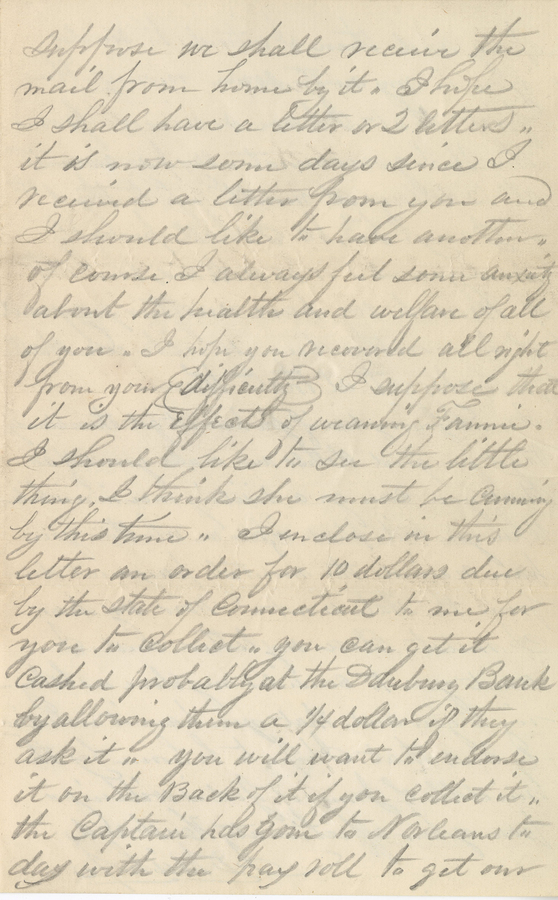 suppose we shall receive the
mail from home by it „ I hope
I shall have a letter or 2 letters „
it is now some days since I
received a letter from you and
I should like to have another „
of course I always feel some anxiety
about the health and welfare of all
of you „ I hope you recovered all right
from your (difficulty) I suppose that
it is the Effects of weaning Fannie.
I should like to see the little
thing. I think she must be cuning
by this time „ I enclose in this
letter an order for 10 dollars due
by the state of Connecticut to me for
you to collect „ you can get it
cashed probably at the Danbury Bank
by allowing them a 1/4 dollar if they
ask it „ you will want to endorse
it on the Back of it if you collect it „
the Captain has gone to Norleans to
day with the pay roll to get our